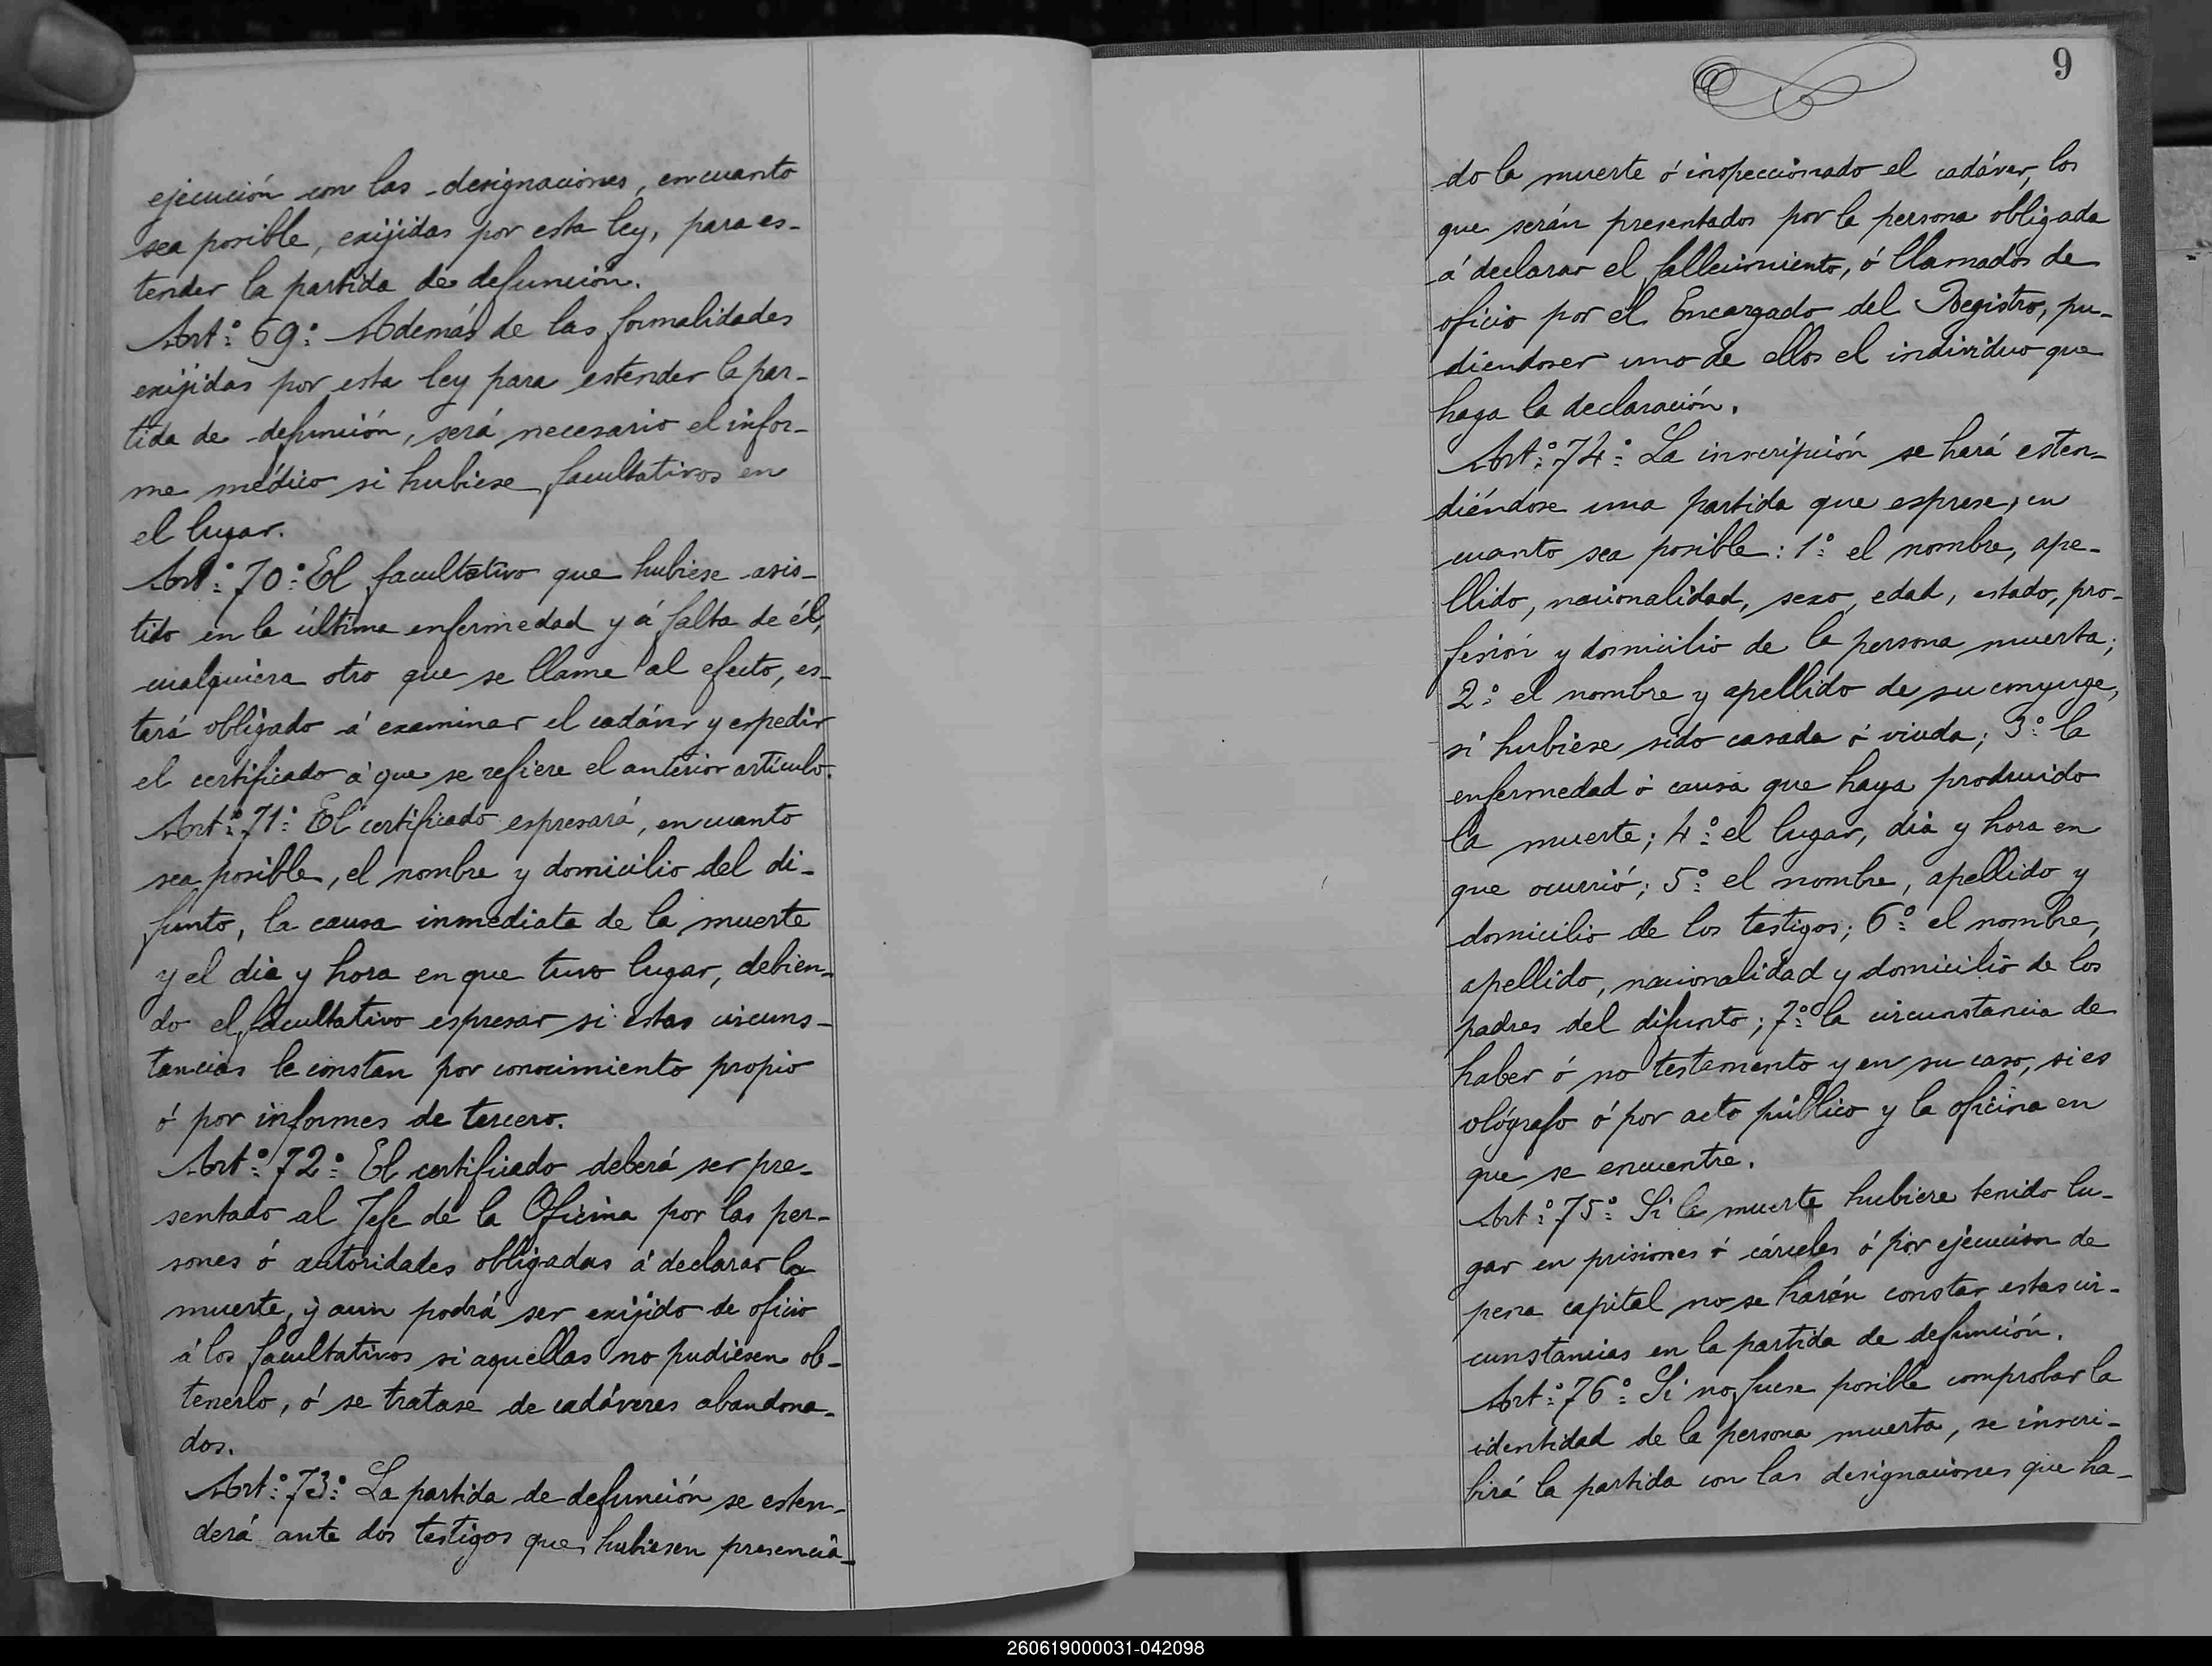 ejecución con las designaciones, en cuanto
sea posible, exijidas por esta ley, para es-
tender la partida de defunción.
Art.º 69.º Además de las formalidades
exijidas por esta ley para estender la par-
tida de defunción, será necesario el infor-
me médico si hubiese facultativos en
el lugar.
Art.º 70.º El facultativo que hubiese asis-
tido en la última enfermedad y á falta de él,
cualquiera otro que se llame al efecto, es-
tará obligado á examinar el cadáver y espedir
el certificado á que se refiere el anterior artículo.
Art.º 71.º El certificado espresará, en cuanto
sea posible, el nombre y domicilio del di-
funto, la causa inmediata de la muerte
y el dia y hora en que tuvo lugar, debien-
do el facultativo espresar si estas circuns-
tancias le constan por conocimiento propio
ó por informes de tercero.
Art.º 72.º El certificado deberá ser pre-
sentado al Jefe de la Oficina por las per-
sones ó autoridades obligadas á declarar la
muerte, y aun podrá ser exijido de oficio
á los facultativos si aquellas no pudiesen ob-
tenerlo, ó se tratase de cadáveres abandona-
dos.
Art.º 73.º La partida de defunción se esten-
derá ante dos testigos que hubiesen presencia-
9
do la muerte ó inspeccionado el cadáver, los
que serán presentados por la persona obligada
á declarar el fallecimiento, ó llamados de
oficio por el Encargado del Registro, pu-
diendo ser uno de ellos el individuo que
haga la declaración.
Art.º 74.º La inscripción se hará esten-
diéndose una partida que esprese, en
cuanto sea posible: 1.º el nombre, ape-
llido, nacionalidad, sexo, edad, estado, pro-
fesión y domicilio de la persona muerta;
2.º el nombre y apellido de su conyuge,
si hubiese sido casada ó viuda; 3.º la
enfermedad ó causa que haya producido
la muerte; 4.º el lugar, dia y hora en
que ocurrió; 5.º el nombre, apellido y
domicilio de los testigos; 6.º el nombre,
apellido, nacionalidad y domicilio de los
padres del difunto; 7.º la circunstancia de
haber ó no testamento y en su caso, si es
ológrafo ó por acto público y la oficina en
que se encuentre.
Art.º 75.º Si la muerte hubiere tenido lu-
gar en prisiones ó cárceles ó por ejecucion de
pena capital no se harán constar estas cir-
cunstancias en la partida de defunción.
Art.º 76.º Si no fuese posible comprobar la
identidad de la persona muerta, se inscri-
birá la partida con las designaciones que ha-
260619000031-042098